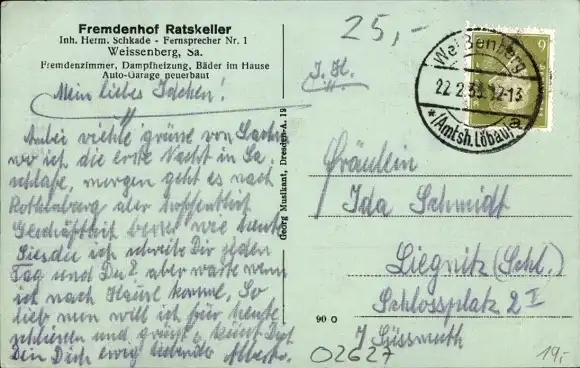 Fremdenhof Ratskeller
Inh. Herm. Schkade - Fernsprecher Nr. 1
Weissenberg, Sa.
Fremdenzimmer, Dampfheizung, Bäder im Hause
Auto-Garage neuerbaut
25,-
J. H.
Weißenberg
22.2.33.12-13
*(Amtsh. Löbau) a
9
Mein liebes Idchen!
viele grüße von
wo ich die erste Nacht in Sa.
schlafe, morgen geht es nach
aber hoffentlich
wie heute
ich schreibe Dir jeden
Tag und Du? aber warte wenn
ich nach Hause komme. So
lieb nun will ich für heute
schliessen und grüßt u. küsst Dich
Dein Dich ewig liebender
Georg Musikant, Dresden-A. 19
Fräulein
Ida Schmidt
Liegnitz (Schl.)
Schlossplatz 2 I
Süssmuth
90 O
02627
19,-